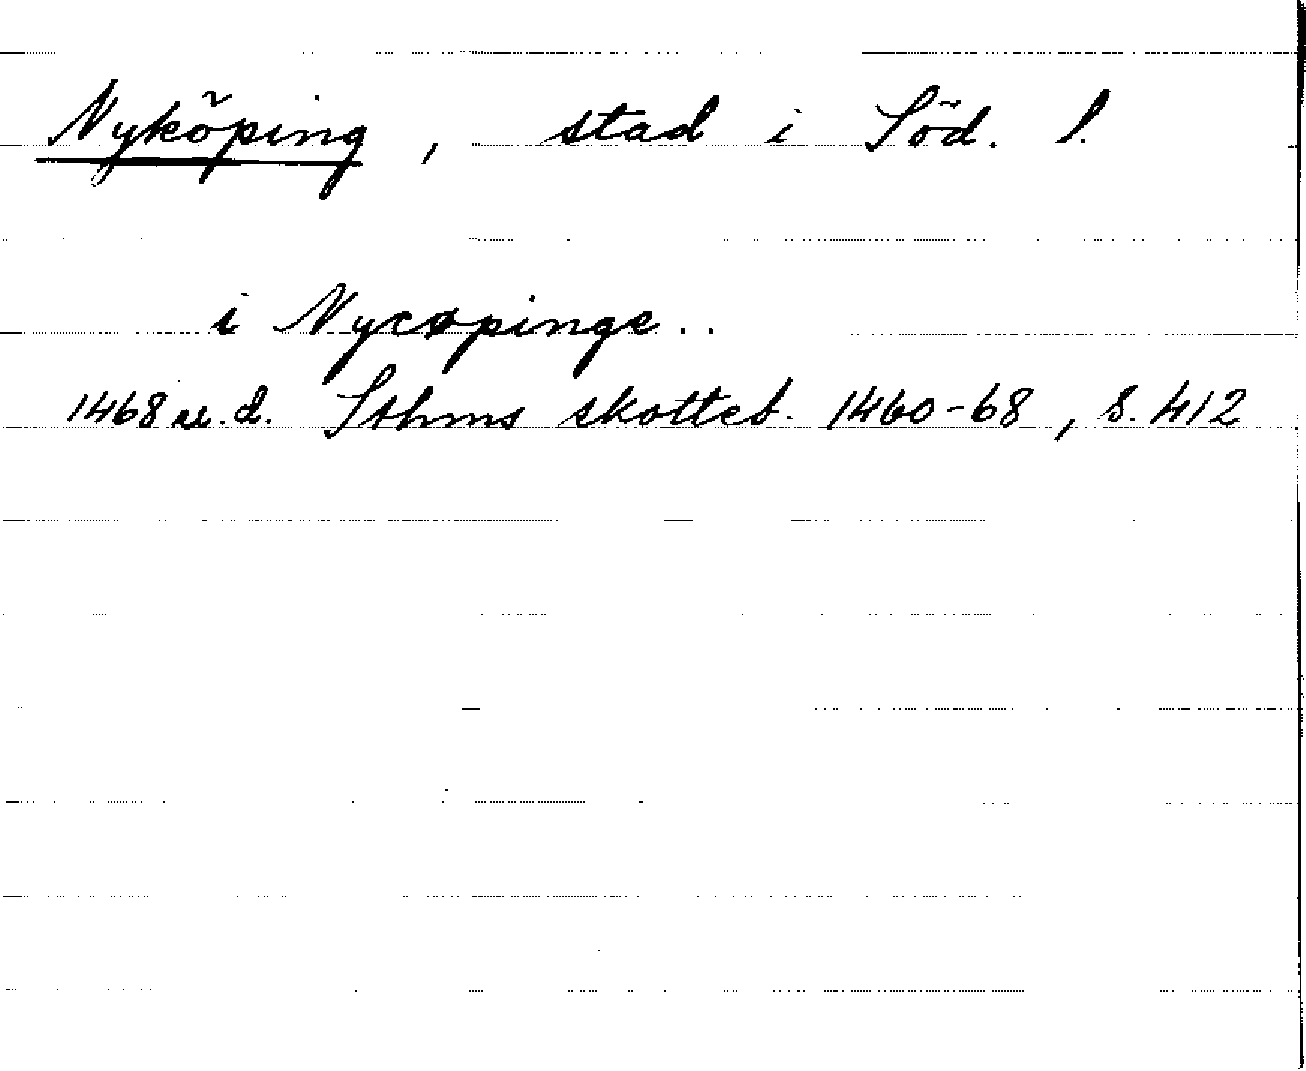 Nyköping, stad i Söd. l.
i Nycøpinge..
1468 u.d. Sthms skotteb. 1460-68, s. 412